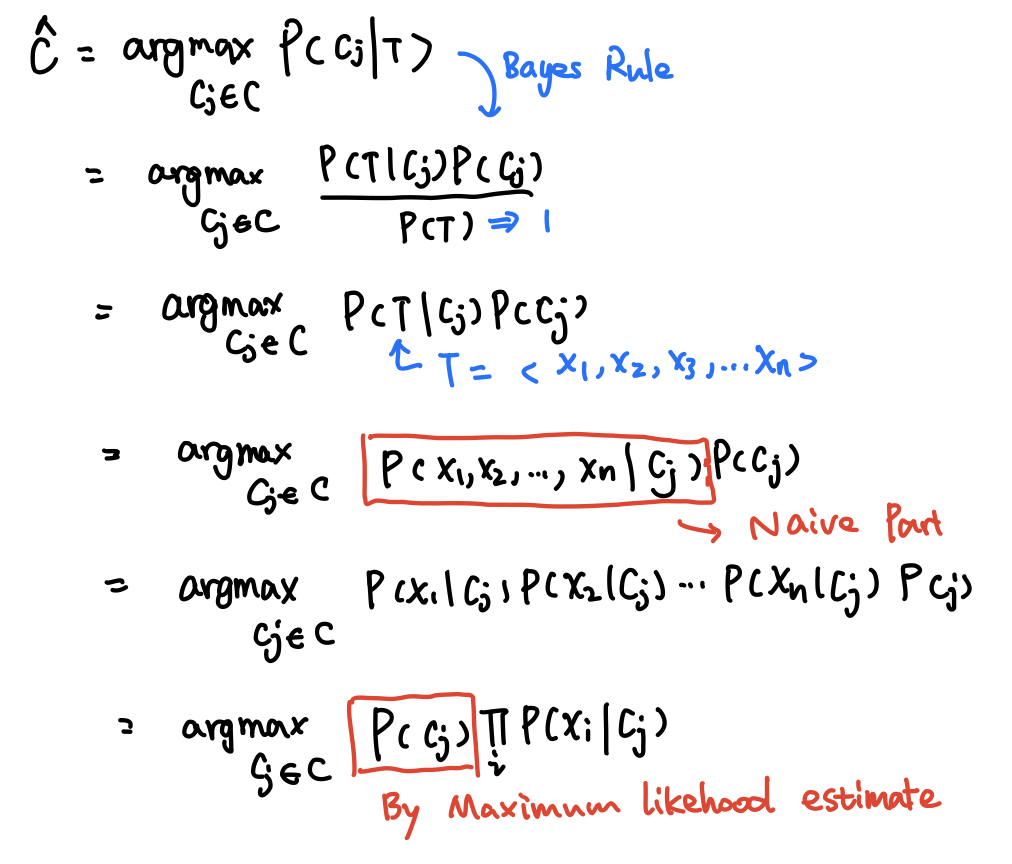 Ĉ = argmax P(Cj|T) Bayes Rule
Cj∈C
= argmax P(T|Cj)P(Cj)
Cj∈C P(T) ⇒ 1
= argmax P(T|Cj)P(Cj)
Cj∈C
T = < x1, x2, x3, ... xn >
= argmax P(x1, x2, ..., xn | Cj) P(Cj)
Cj∈C
→ Naive Part
= argmax P(x1|Cj) P(x2|Cj) ... P(xn|Cj) P(j)
Cj∈C
= argmax P(Cj) ∏ P(xi|Cj)
Cj∈C i
By Maximum likehood estimate